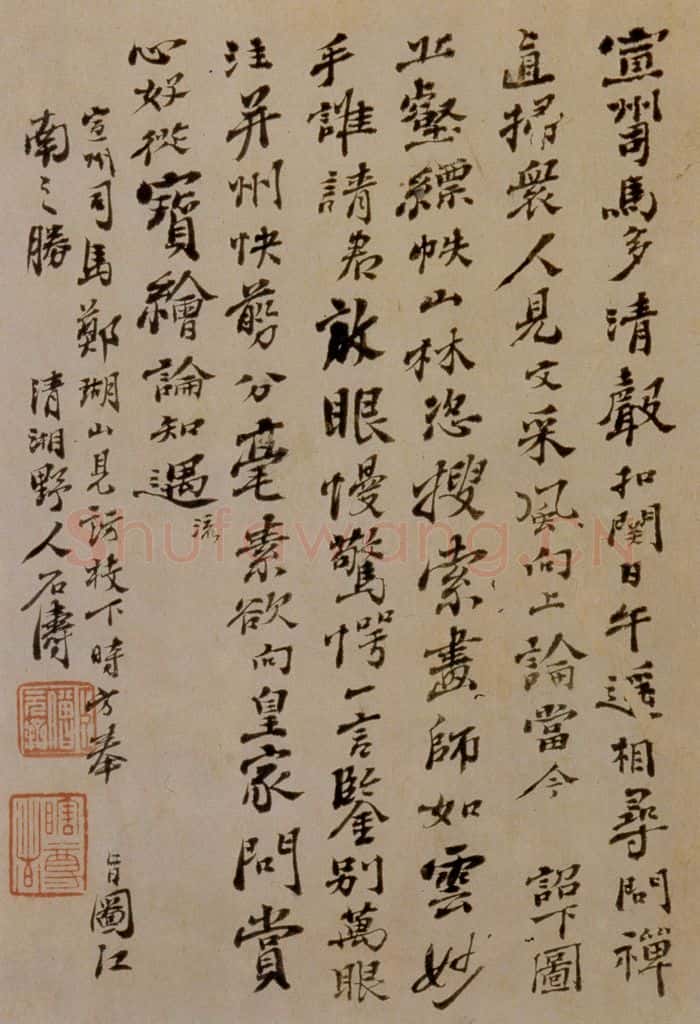 宣州司馬多清嚴扣關日午遙相尋問禪
直掃衆人見文采風向上論當今 詔下圖
丘壑縹帙山林恣搜索畫師如雲妙
手誰請君放眼慢驚愕一言鑒別萬眼
注并州快剪分毫素欲向皇家問賞
心好從寶繪論知遇
流
宣州司馬鄭瑚山見訪枝下時方奉 旨圖江
南之勝 清湘野人石濤
Shufawang.CN